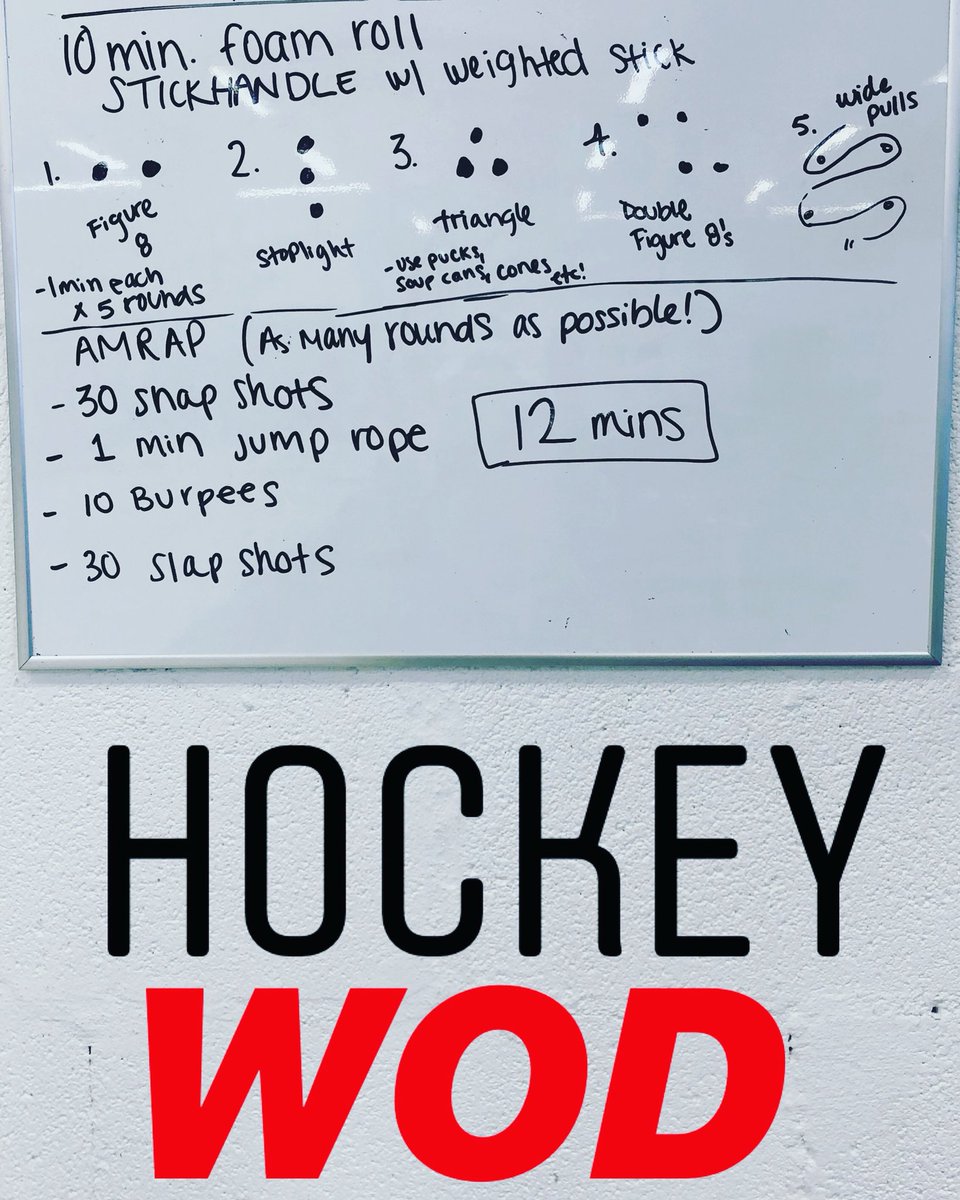 10 min. foam roll
STICKHANDLE w/ weighted stick
1.
Figure
8
-1min each
x 5 rounds
2.
stoplight
3.
triangle
-use pucks,
soup cans, cones, etc!
4.
Double
Figure 8's
5. wide
pulls
"
AMRAP (As Many rounds as possible!)
- 30 snap shots
- 1 min jump rope
12 mins
- 10 Burpees
- 30 slap shots
HOCKEY
WOD